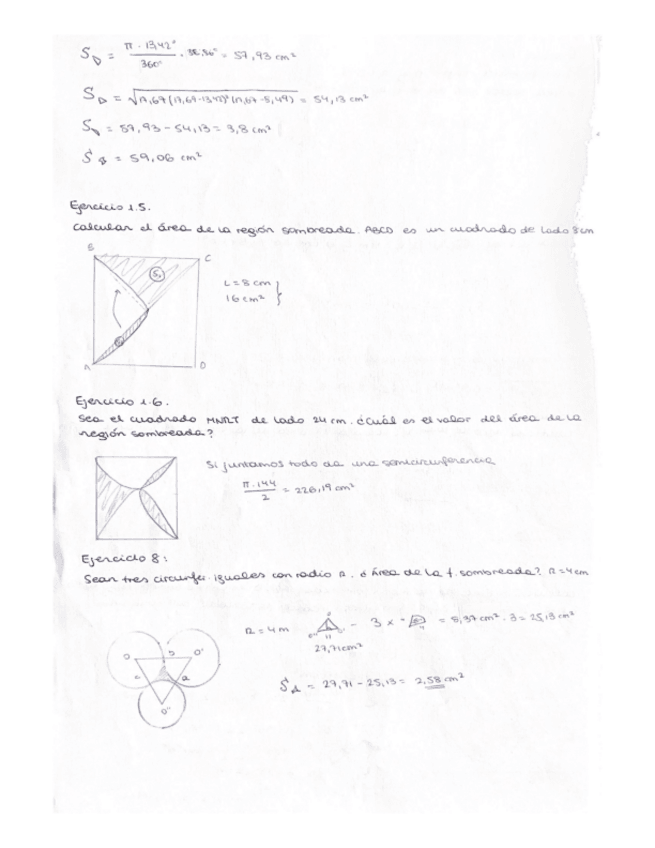 S = π · 13,42² / 360° · = 57,93 cm²
S = √17,67 (17,67-13,42)² (17,67-5,49) = 54,13 cm²
S = 57,93 - 54,13 = 3,8 cm²
S = 59,06 cm²
Ejercicio 1.5.
Calcular el área de la región sombreada. ABCD es un cuadrado de lado 8 cm
B
C
A
D
L = 8 cm
16 cm²
Ejercicio 1.6.
Sea el cuadrado de lado 24 cm. ¿Cuál es el valor del área de la
región sombreada?
Si juntamos todo da una semicircunferencia
π · 144 / 2 = 226,19 cm²
Ejercicio 8:
Sean tres circunfer. iguales con radio R. ¿Área de la f. sombreada? R = 4 cm
R = 4 m
- 3 x = 8,37 cm² · 3 = 25,13 cm²
27,71 cm²
O
b
O'
c
a
O''
S = 27,71 - 25,13 = 2,58 cm²